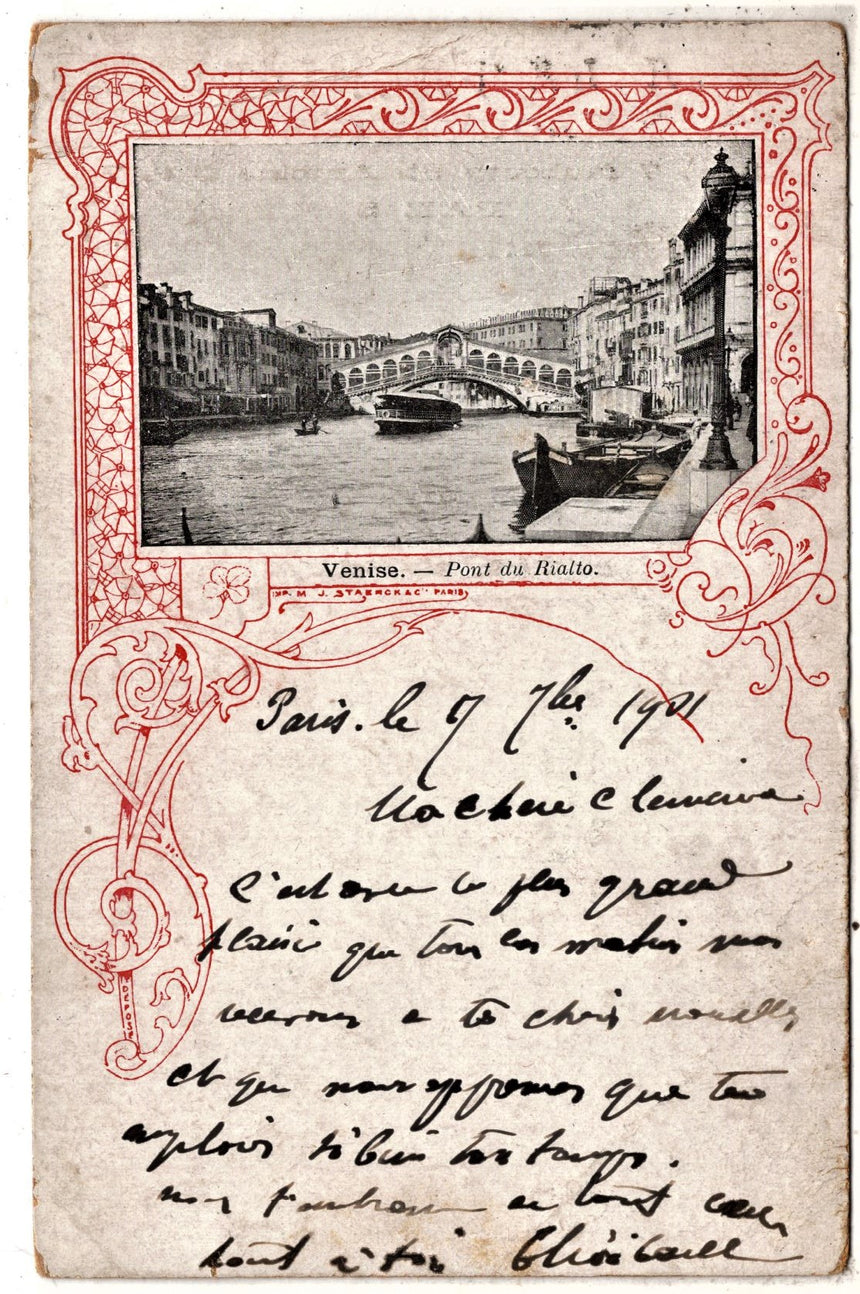 Venise. — Pont du Rialto.
IMP. M. J. STAERCK & Cie PARIS
DEPOSÉ
Paris. le 7 7bre 1901
Ma chère
C'est avec le plus grand
plaisir que tous les matins nous
recevons
et que nous apprenons que tu
emploies si bien ton temps.
nous t'embrassons de tout cœur
tout à toi